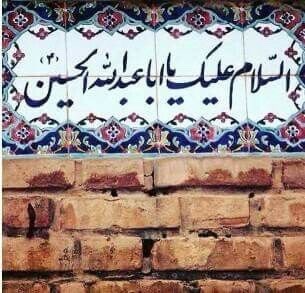 السلام علیک یا ابا عبدالله الحسین (ع)